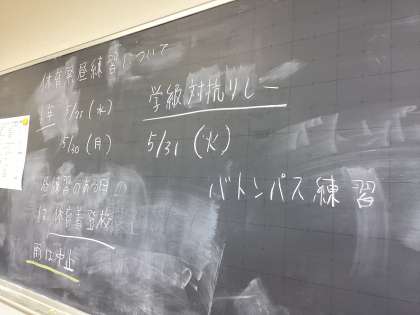 体育祭昼練習について
1年 5/25(水)
5/30(月)
昼練習のある日
体育着登校
雨は中止
学級対抗リレー
5/31(火)
バトンパス練習